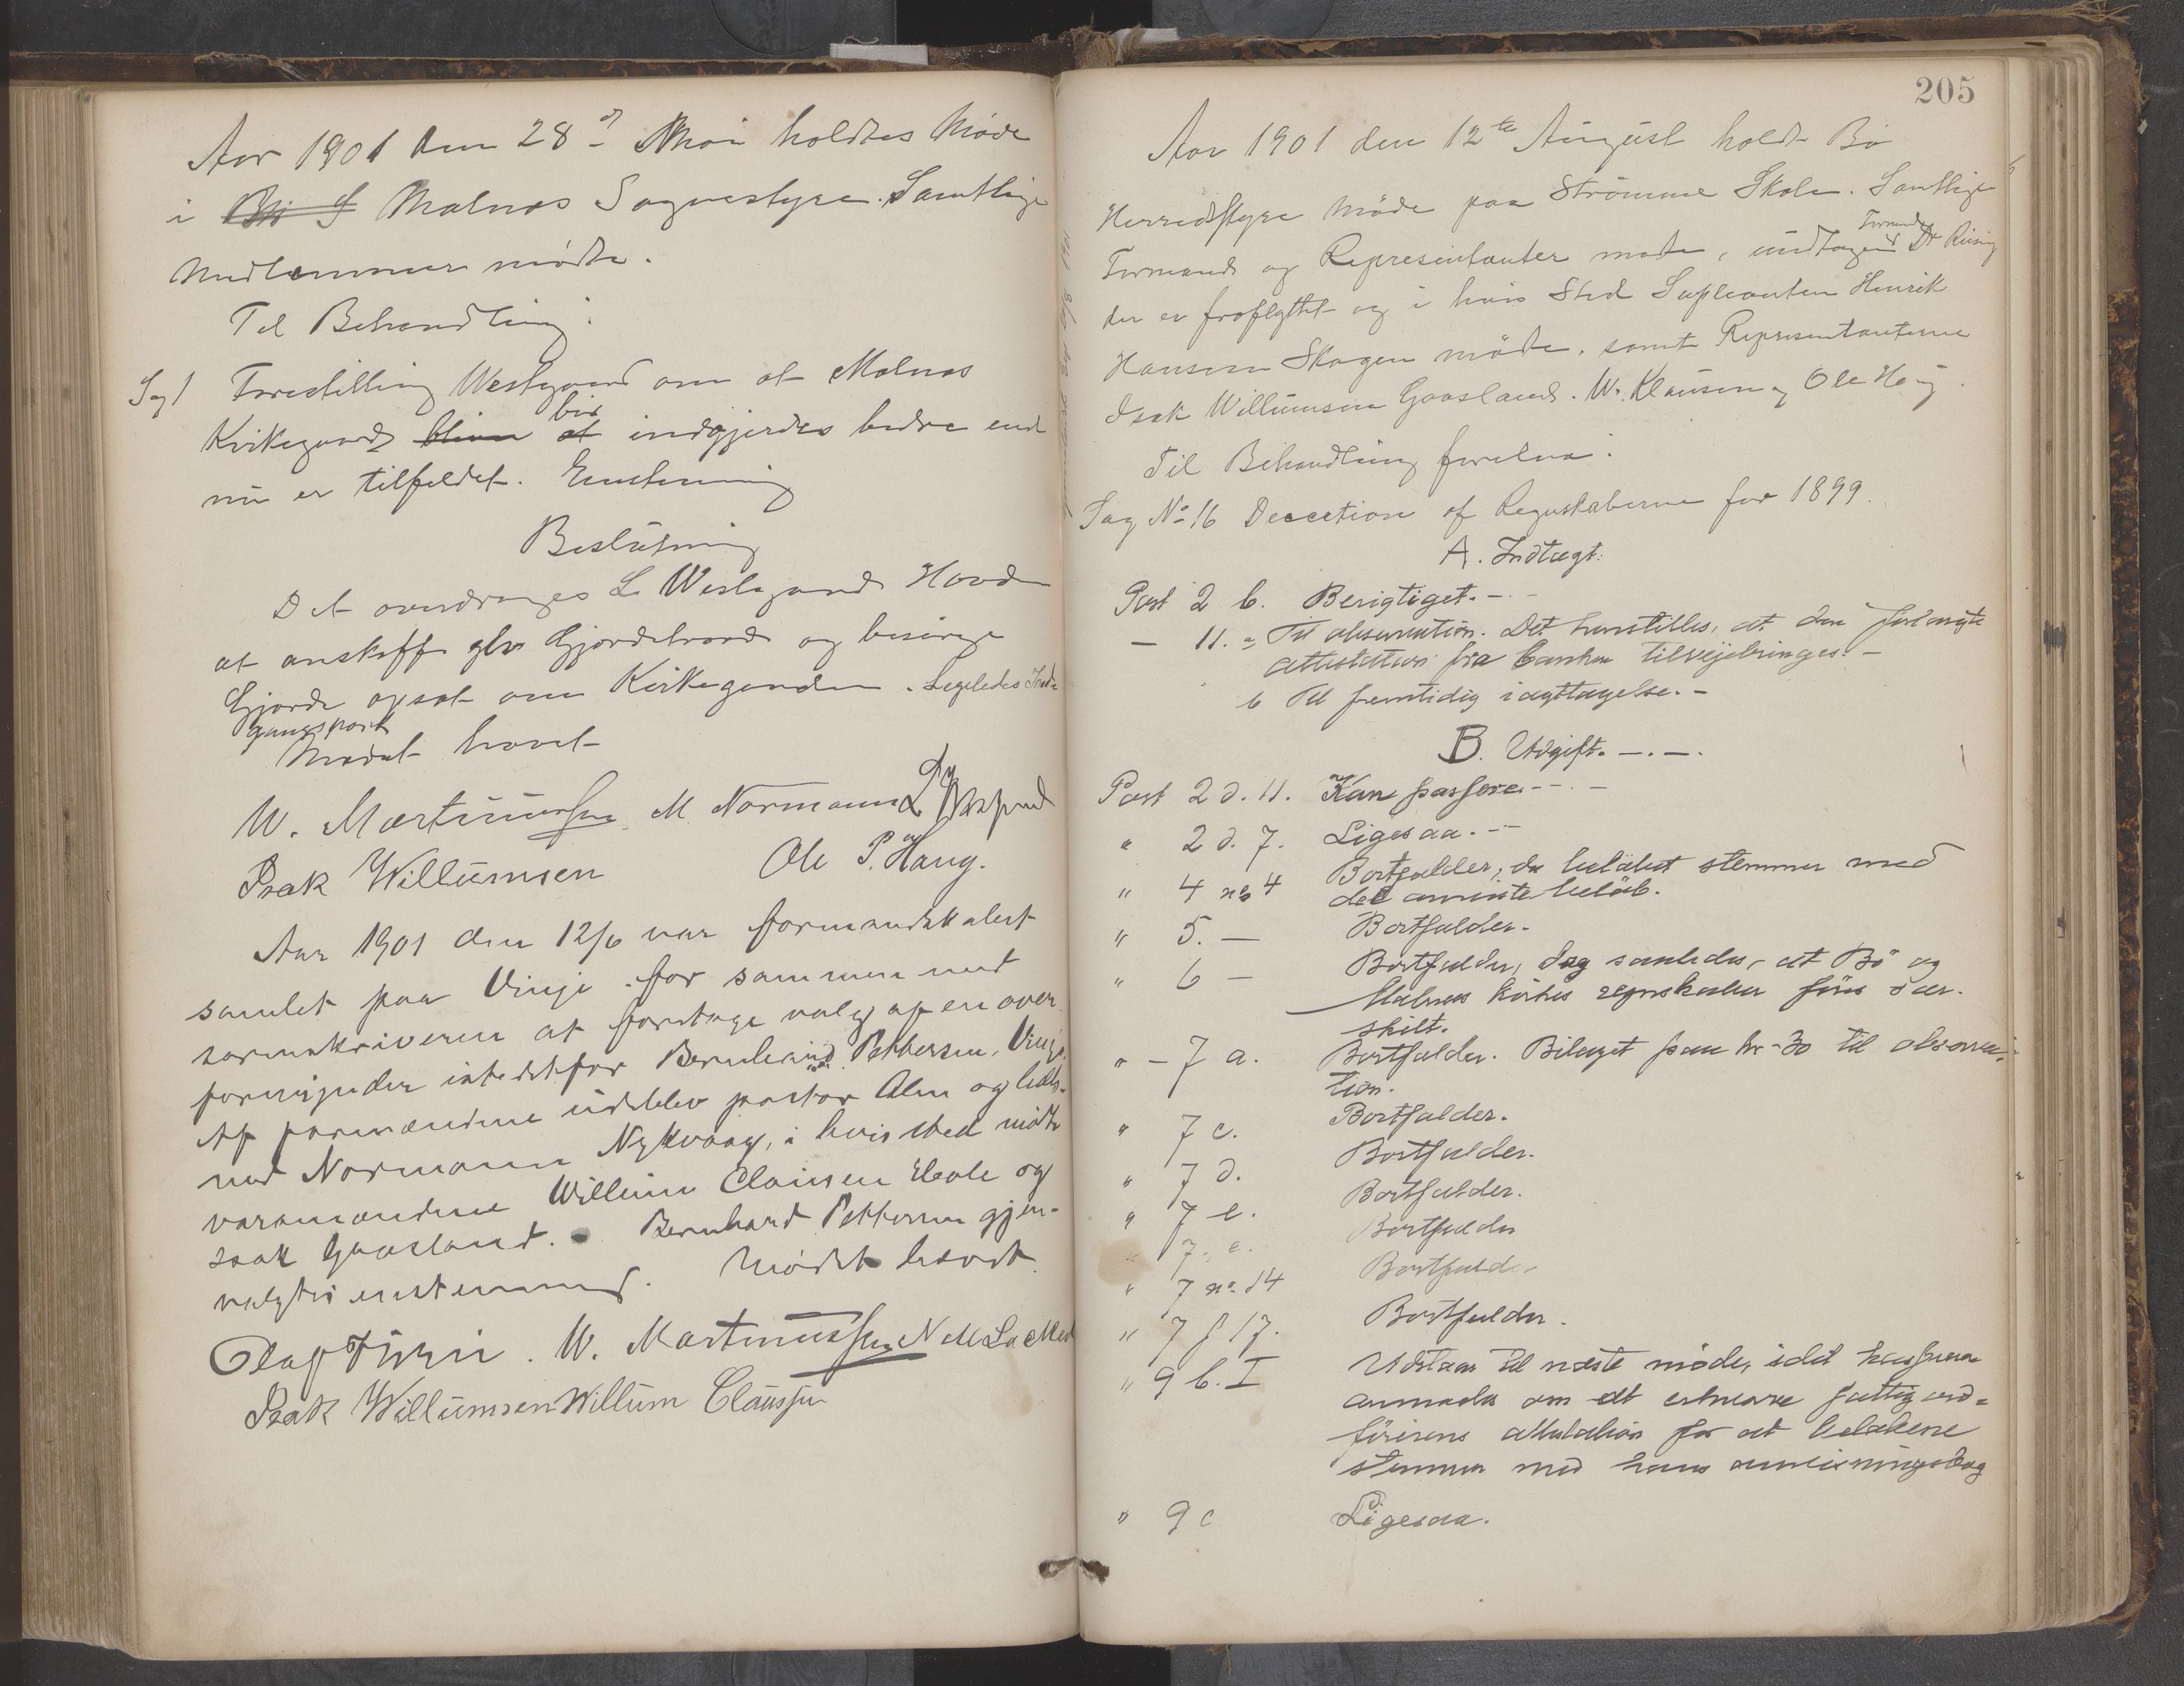 Aar 1901 den 28d Mai holdtes Møde
i Malnæs Sognestyre. Samtlige
Medlemmer mødte.
Til Behandling:
Sag 1 Forestilling Westgaard om at Malnæs
Kirkegaard blir indgjerdes bedre end
nu er tilfeldet. Enstemmig
Beslutning
Det overdrages L. Westgaard Hovden
at anskaffe Gjerdetraad og besørge
Gjerde opsat om Kirkegaarden. Ligeledes Ind-
gangsport
Mødet hævet
W. Martinussen M. Normann L
Isak Willumsen Ole P. Haug.
Aar 1901 den 12/6 var formandskabet
samlet paa Vinje for sammen med
sorenskriveren at foretage valg af en over-
formynder istedetfor Bernhard Pettersen, Vinje.
Af formændene udeblev pastor Alm og
Normann Nykvaag, i hvis sted mødte
varamændene Willum Clausen Hole og
Isak Gaasland. Bernhard Pettersen gjen-
valgtes enstemmig. Mødet hævet
Olaf W. Martinussen N
Isak Willumsen Willum Claussen
205
Aar 1901 den 12te August holdt Bø
Herredstyre Møde paa Strømme Skole. Samtlige
Formænd og Representanter møte, undtagen Formand Dr Riising
der er fraflyttet og i hvis Sted Supleanten Henrik
Hansen Skagen møte, samt Representanterne
Isak Willumsen Gaasland. W. Klausen og Ole Haug.
Til Behandling forelaa:
Sag No 16 Decision af Regnskaberne for 1899.
A. Indtægt:
Post 2 b. Berigtiget. -
- 11. a Til observation. Det henstilles, at den forlangte
attestation fra banken tilvejebringes. -
b Til fremtidig iagttagelse. -
B. Udgift. -.-.
Post 2 d. 11. Kan passere. -
" 2 d. 7. Ligesaa. -
" 4 no 4 Bortfalder, da beløbet stemmer med
det anviste beløb.
" 5. - Bortfalder.
" 6 - Bortfalder, dog saaledes, at Bø og
Malnæs kirkes regnskaber føres sær-
skilt.
" - 7 a. Bortfalder. Bilaget paa kr 30 til observa-
tion.
" 7 c. Bortfalder.
" 7 d. Bortfalder.
" 7 e. Bortfalder.
" 7. e. Bortfalder
" 7 no 14 Bortfalder
" 7 f 17. Bortfalder.
" 9 b. I Udstaar til næste møde, idet kassereren
anmodes om at erhverve fattigord-
førerens attestation for at beløbene
stemmer med hans anvisningsbog
" 9 c Ligesaa.